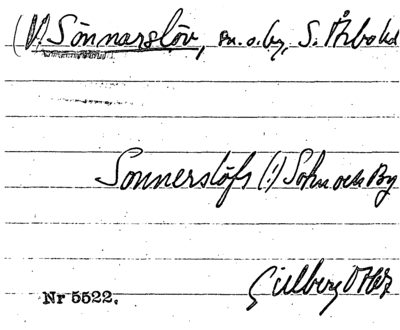 (V) Sönnarslöv, sn. o. by, S. Åsbo hd
Sonnerslöfs (!) Sokn och By
Gillberg
Nr 5522.